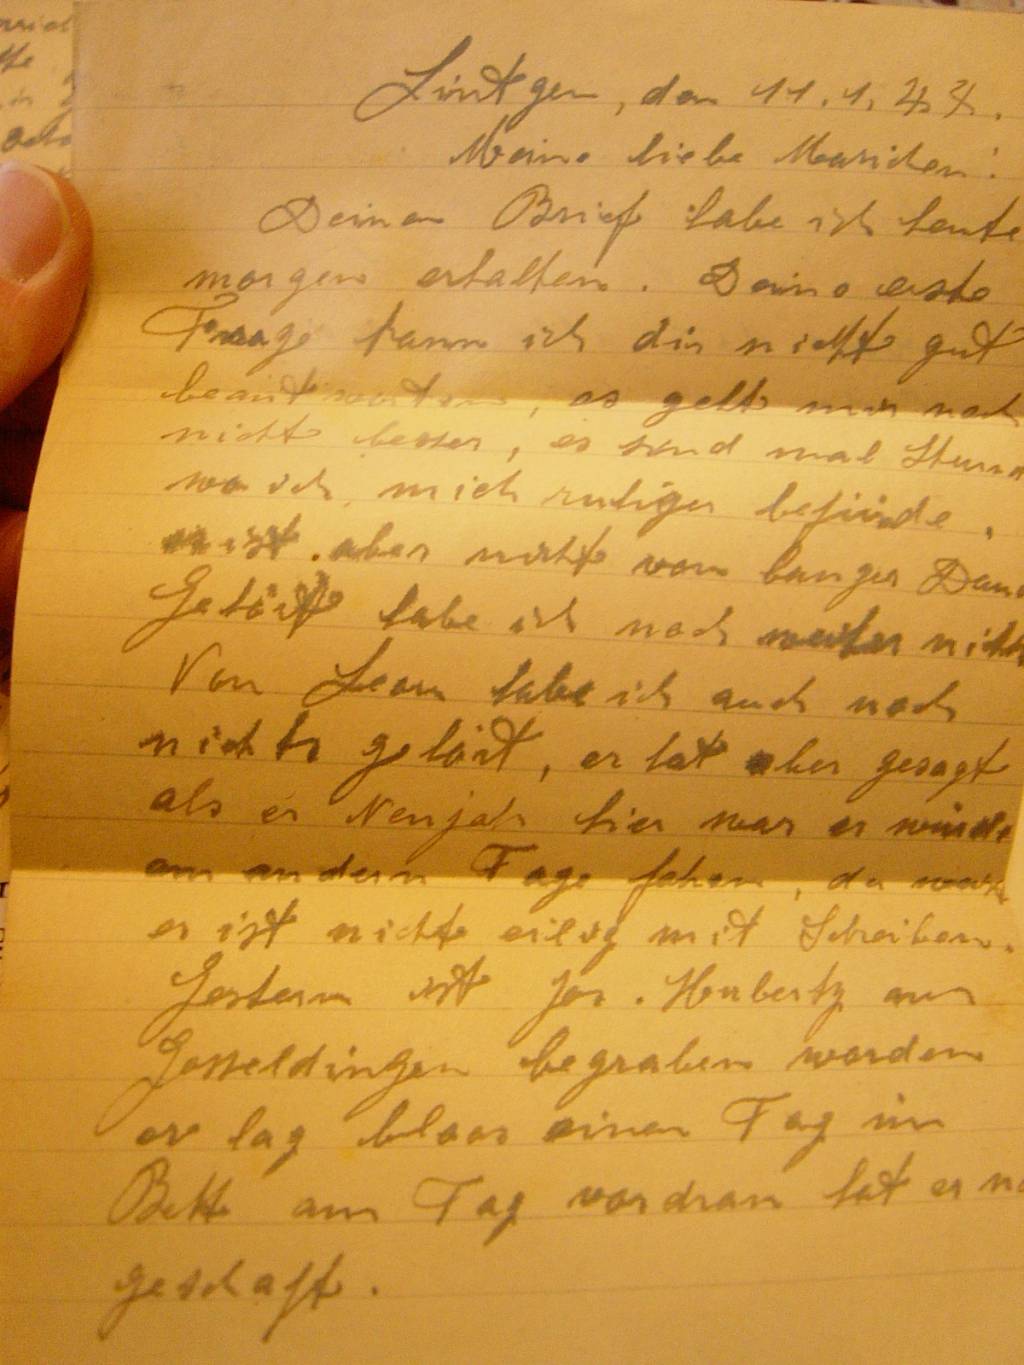 Lintgen, den 11.1.44.
Meine liebe Mariechen!
Deinen Brief habe ich heute
morgen erhalten. Deine erste
Frage kann ich dir nicht gut
beantworten, es geht mir noch
nicht besser, es sind mal Stund
wo ich mich ruhiger befinde,
ist aber nicht von langer Dau
Gehört habe ich noch weiter nicht
Von Leon habe ich auch noch
nichts gehört, er hat aber gesagt
als er Neujahr hier war er würde
am andern Tage fahren, da
er ist nicht eilig mit Schreiben.
Gestern ist Jos. Hubertz aus
Gosseldingen begraben worden
er lag bloss einen Tag im
Bett am Tag vordran hat er no
geschafft.